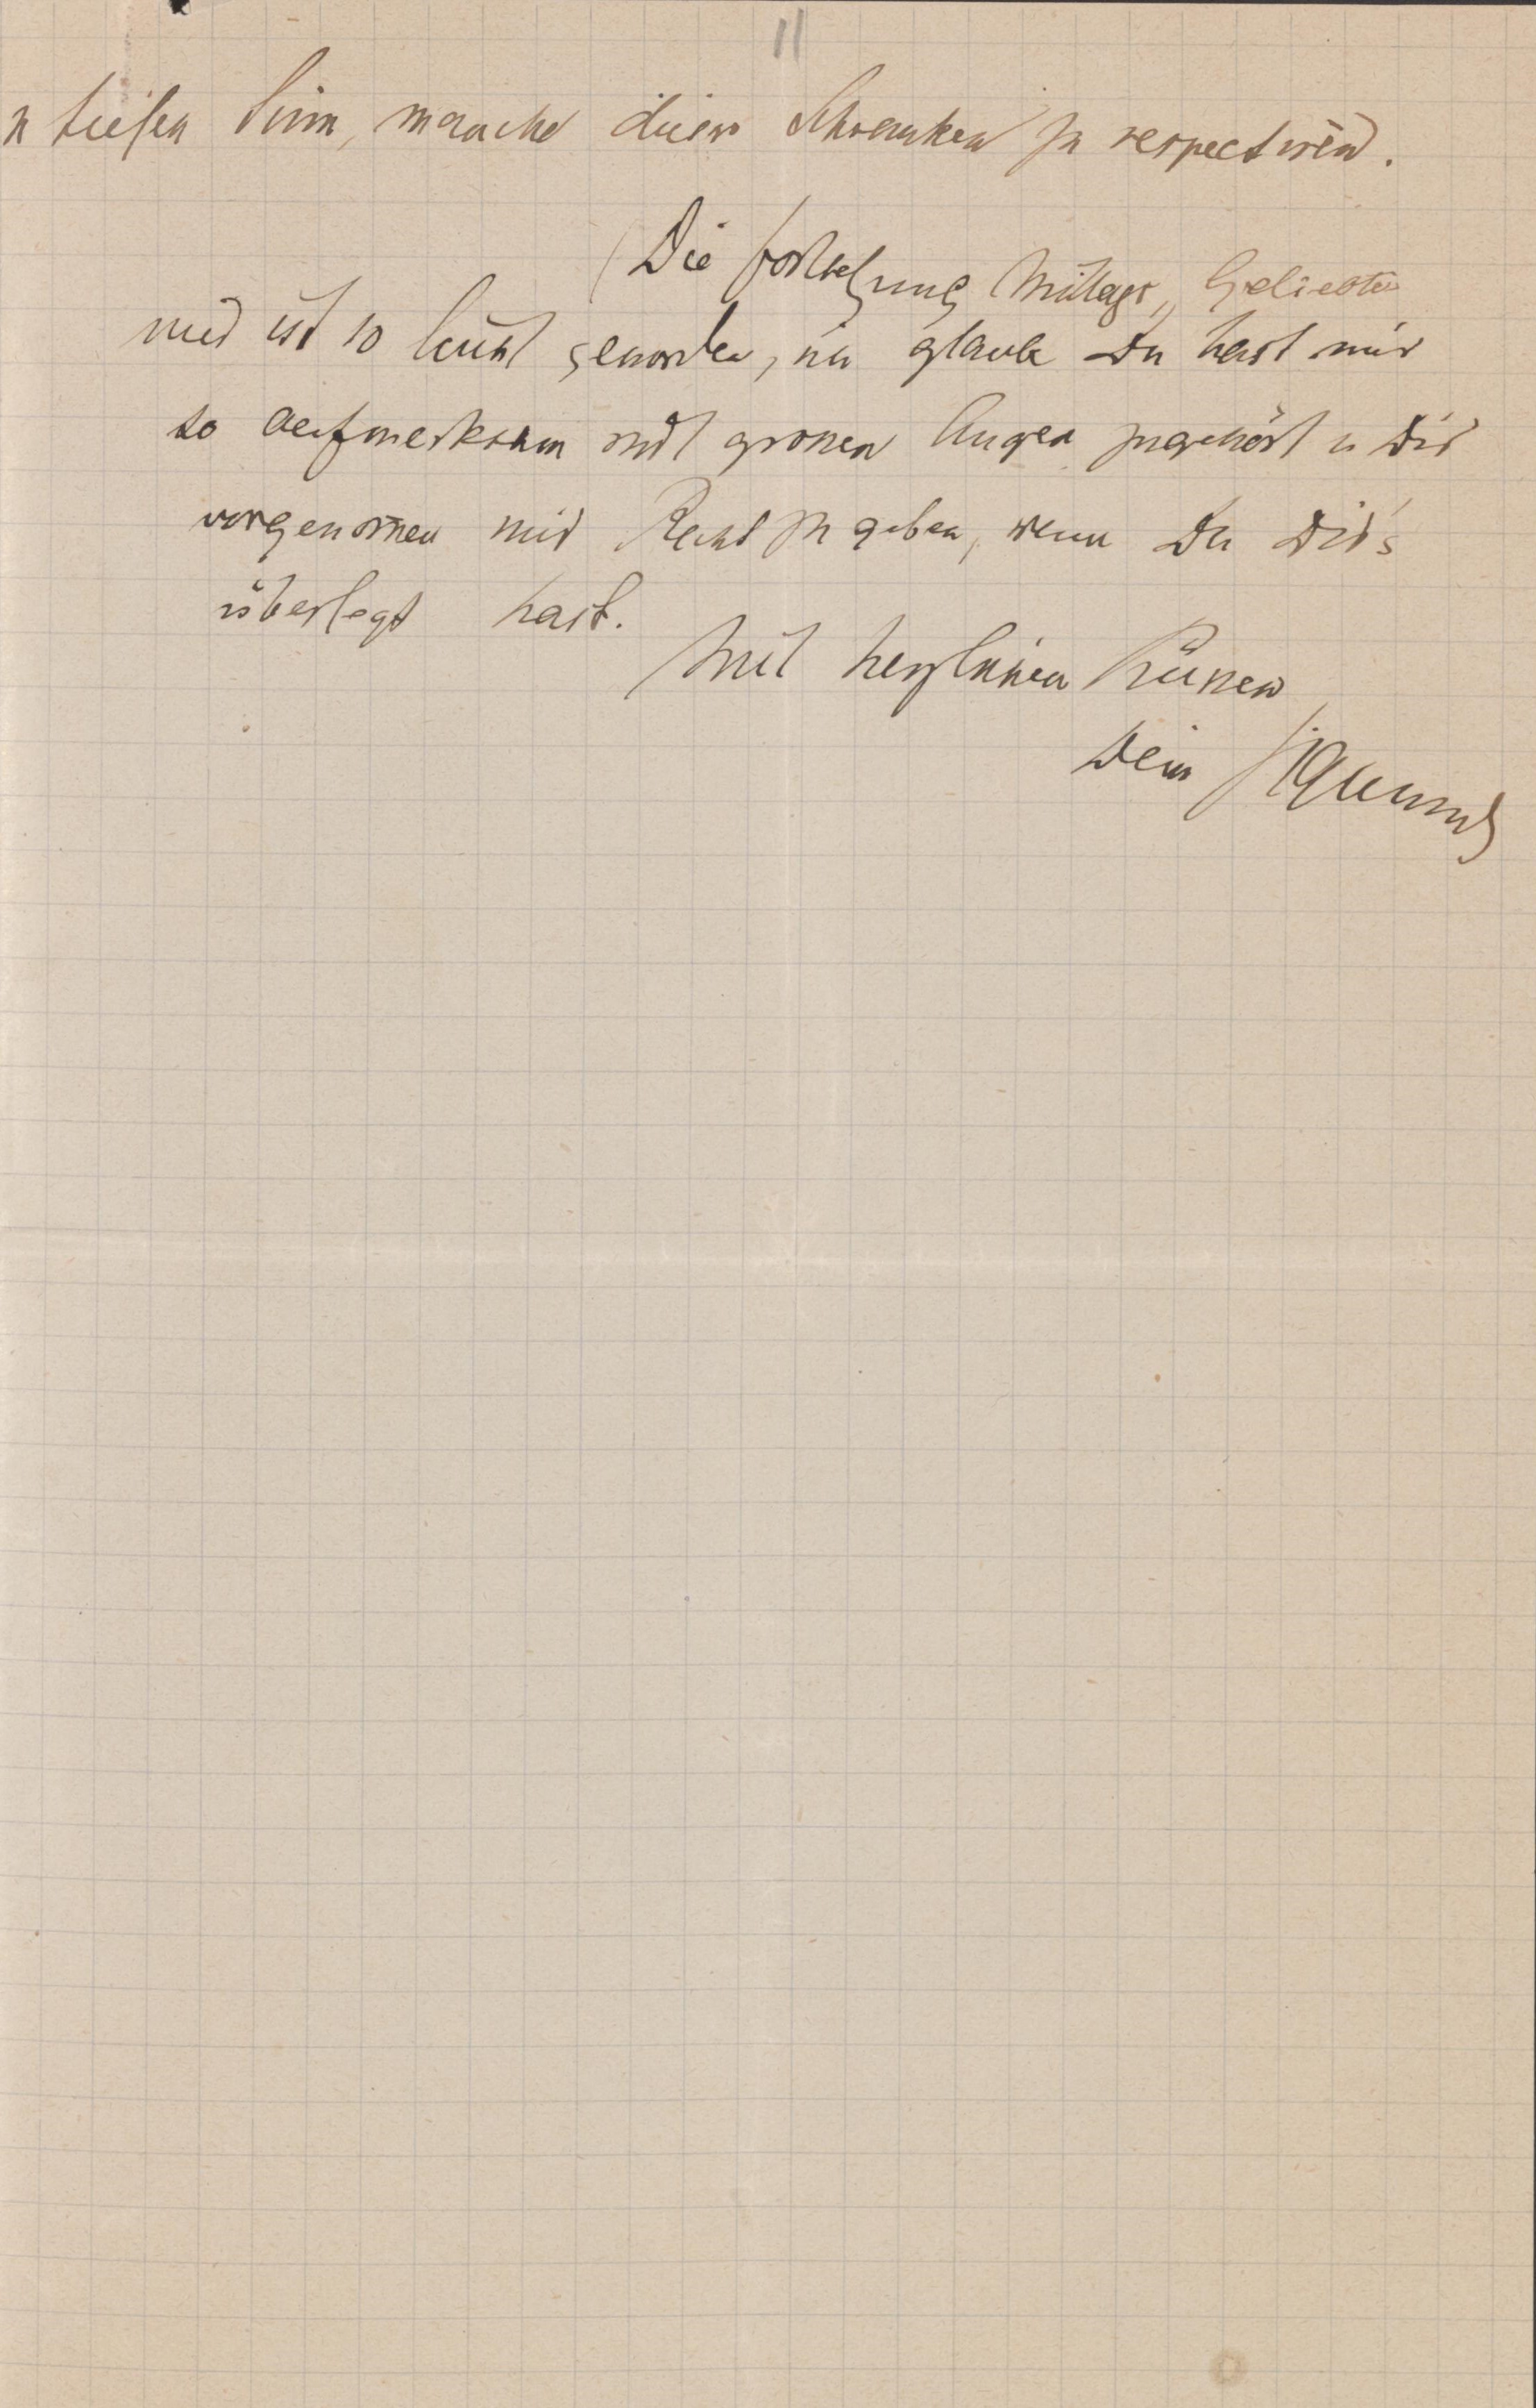 11
n tiefen Sinn, manche dieser Schranken zu respectiren.
(Die Fortsetzung Mittags, Geliebte
mir ist so leicht geworden, ich glaube Du hast mir
so aufmerksam mit grossen Augen zugehört u Dir
vorgenom̄en mir Recht zu geben, wenn Du Dir's
überlegt hast.
Mit herzlichen Küssen
Dein Sigmund